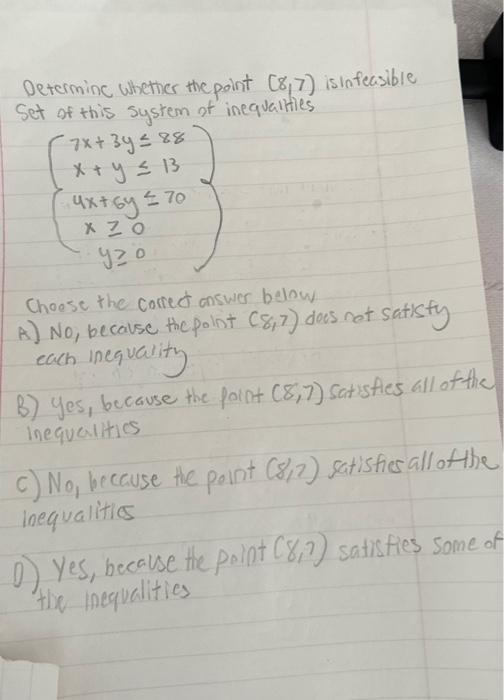 Determine whether the point (8,7) is infeasible
Set of this system of inequalities
7x + 3y ≤ 88
x + y ≤ 13
4x + 6y ≤ 70
x ≥ 0
y ≥ 0
Choose the correct answer below
A) No, because the point (8,7) does not satisfy
each inequality
B) Yes, because the point (8,7) satisfies all of the
inequalities
C) No, because the point (8,7) satisfies all of the
inequalities
D) Yes, because the point (8,7) satisfies some of
the inequalities